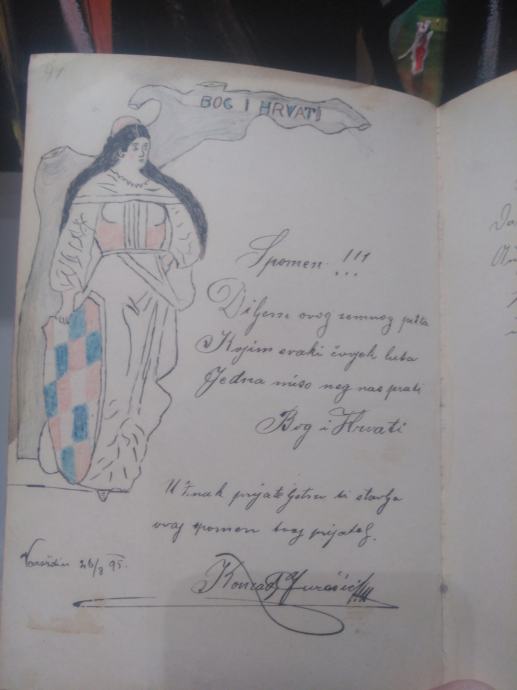 91
BOG I HRVATI
Spomen !!!
Diljem ovog zemnog puta
Kojim svaki čovjek luta
Jedna miso neg nas prati
Bog i Hrvati
U znak prijateljstva ti stavlja
ovaj spomen tvoj prijatelj.
Varaždin 26/3 95.
Konrad
Da